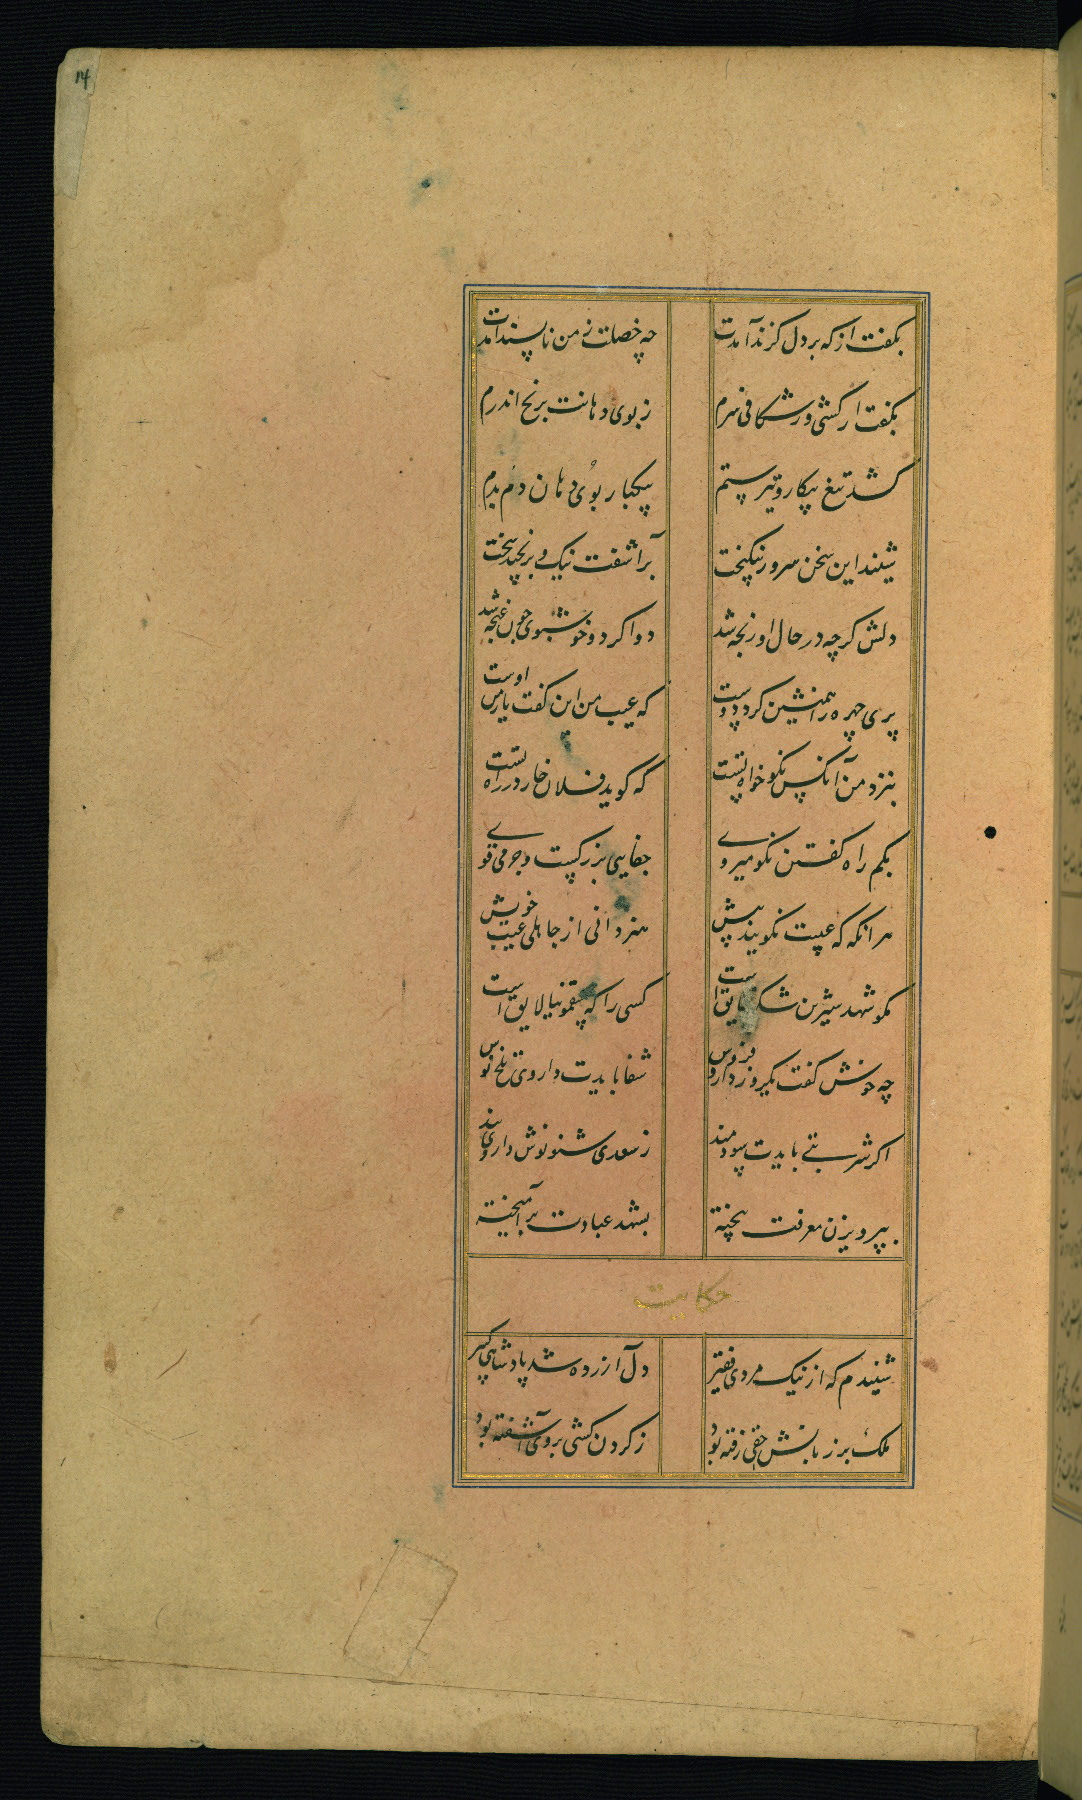 ۱۴
بگفت از که بر دل گزند آمدت
چه خصلت ز من ناپسند آمدت
بگفت ار کشی ور شکافی سرم
ز بوی دهانت برنج اندرم
کشد تیغ پیکار و تیر ستم
بیکبار و بوی دهان دم بدم
شنید این سخن سرور نیکبخت
برآشفت نیک و برنجید سخت
دلش گرچه در حال او رنجه شد
دوا کرد و خوشبوی چون غنچه شد
پری چهره را همنشین کرد و دوست
که عیب من این گفت یار من اوست
بنزد من آنکس نکو خواه تست
که گوید فلان خار در راه تست
بگم راه گفتن نکو میروی
جفایی بزرگست و جرمی قوی
هر انگه که عیبت نگویند پیش
هنر دانی از جاهلی عیب خویش
مگو شهد شیرین شکر فایق است
کسی را که سقمونیا لایق است
چه خوش گفت یکروز دارو فروش
شفا بایدت داروی تلخ نوش
اگر شربتی بایدت سودمند
ز سعدی شنو نوش داروی پند
بپرویزن معرفت بیخته
بشهد عبادت برآمیخته
حکایت
شنیدم که از نیک مردی فقیر
دل آزرده شد پادشاهی کبیر
ملک بر زبانش حقی رفته بود
ز گردن کشی بر وی آشفته بود